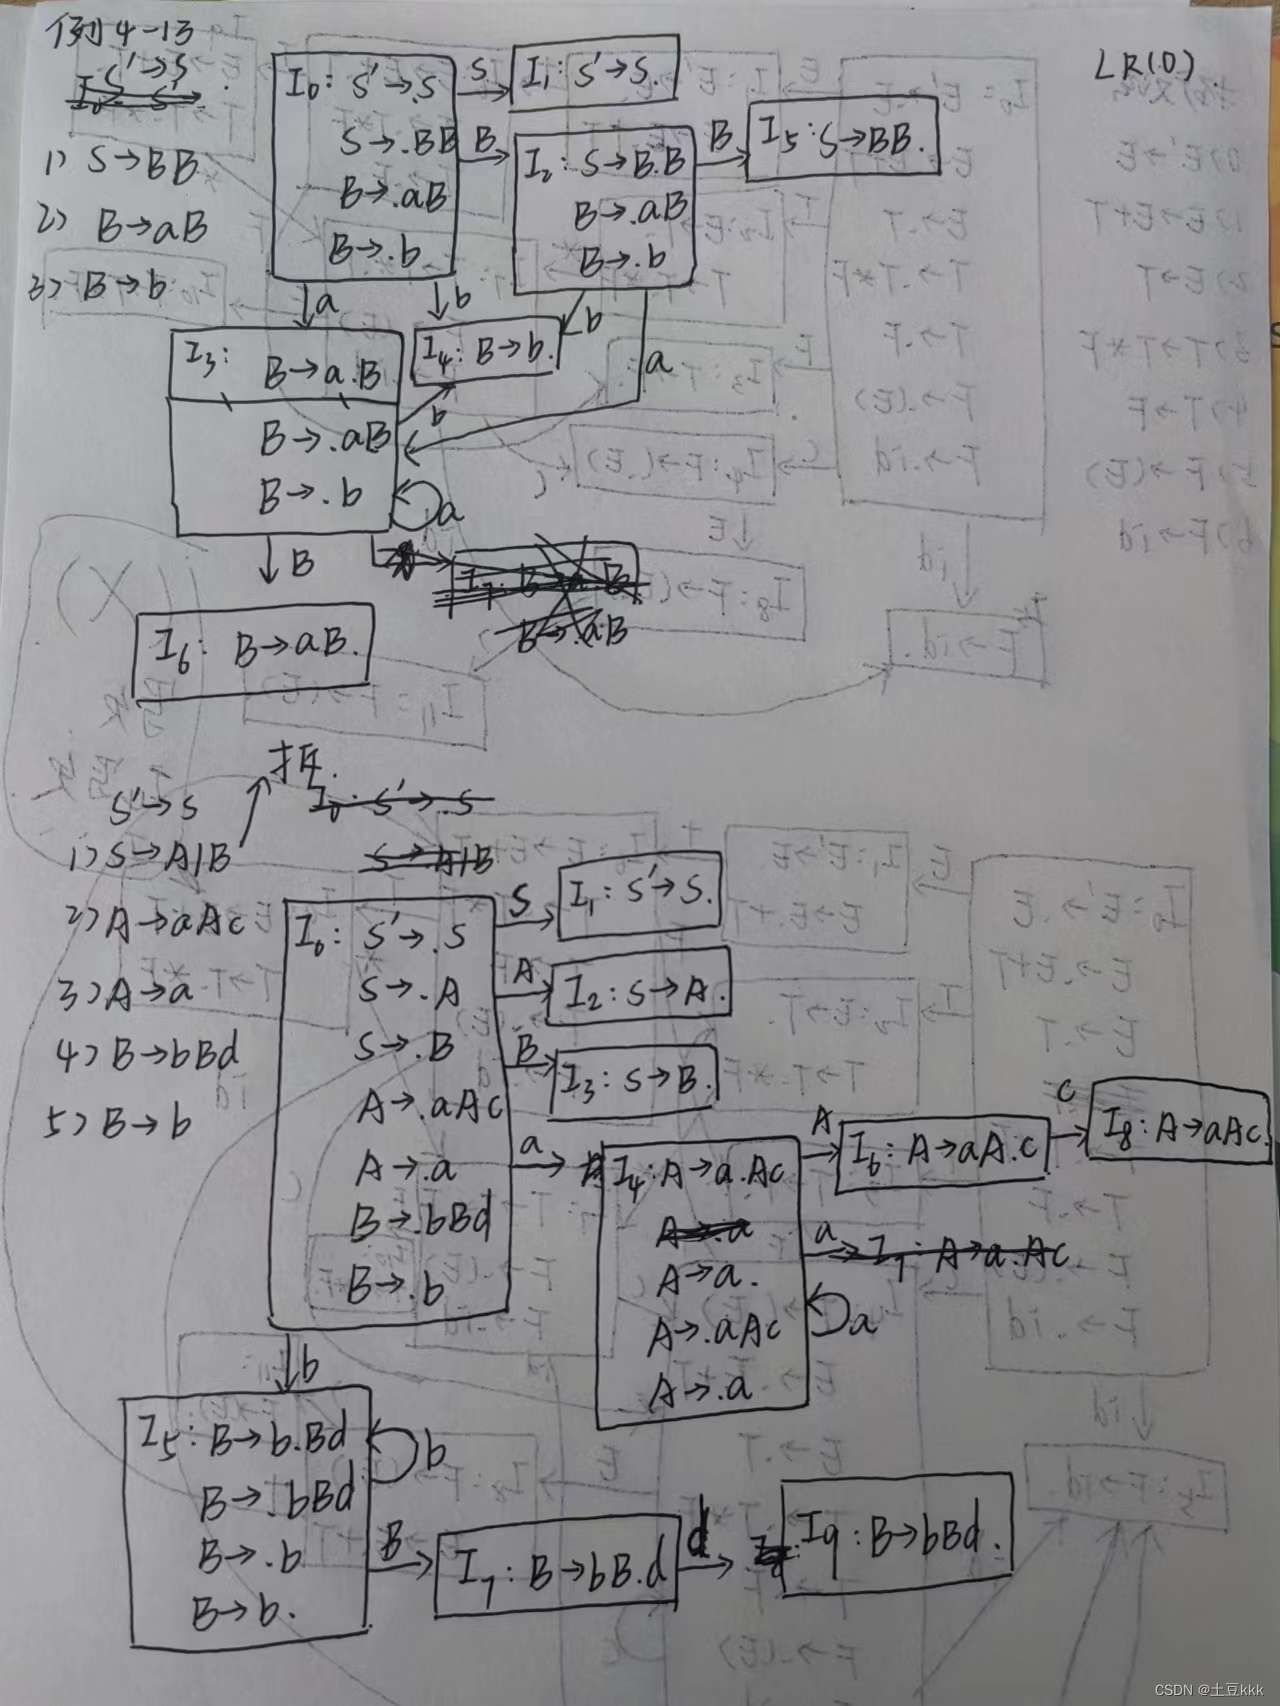 例4-13
LR(0)
S'→S
1) S→BB
2) B→aB
3) B→b
I0: S'→.S
S→.BB
B→.aB
B→.b
S
I1: S'→S.
B
I2: S→B.B
B→.aB
B→.b
B
I5: S→BB.
a
b
b
a
I3: B→a.B
B→.aB
B→.b
I4: B→b.
b
a
B
I6: B→aB.
S'→S
1) S→A|B
2) A→aAc
3) A→a
4) B→bBd
5) B→b
I0: S'→.S
S→.A
S→.B
A→.aAc
A→.a
B→.bBd
B→.b
S
I1: S'→S.
A
I2: S→A.
B
I3: S→B.
a
I4: A→a.Ac
A→a.
A→.aAc
A→.a
a
A
I6: A→aA.c
c
I8: A→aAc.
a
I7: A→a.Ac
b
I5: B→b.Bd
B→.bBd
B→.b
B→b.
b
B
I7: B→bB.d
d
I9: B→bBd.
CSDN @土豆kkk